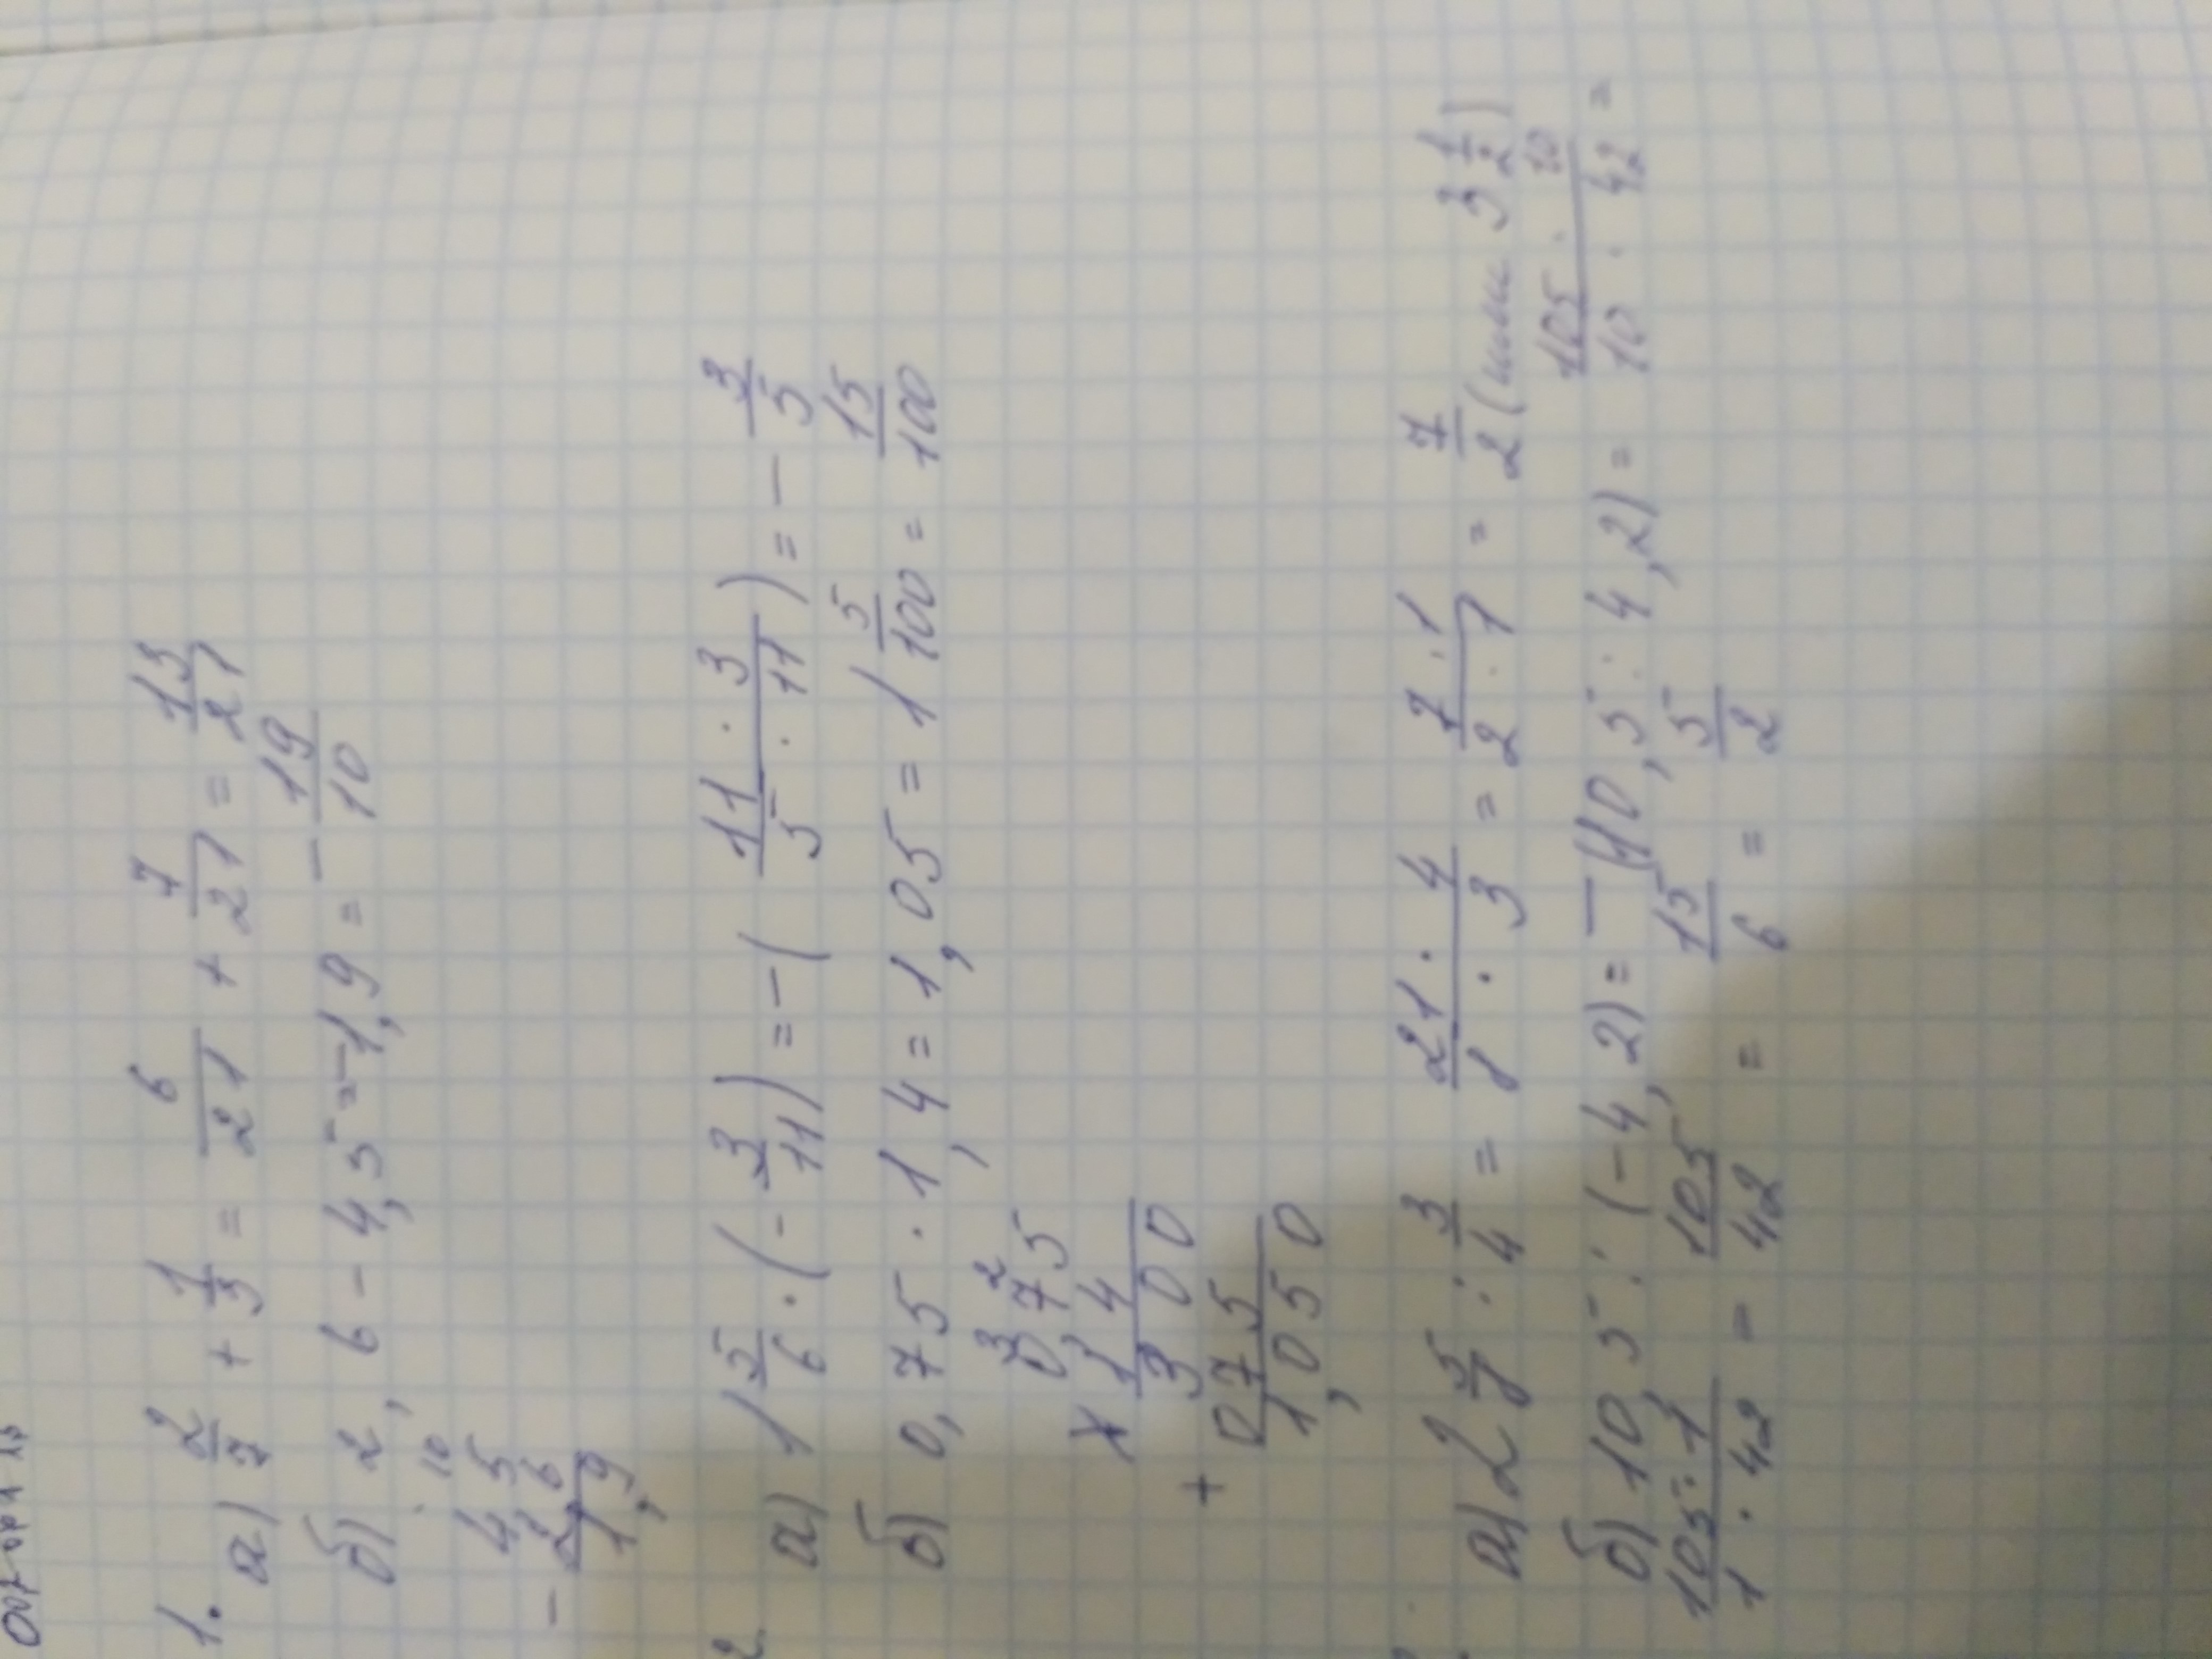 1.
а) 2/7 + 1/3 = 6/21 + 7/21 = 13/21
б) 2,6 - 4,5 = -1,9 = - 19/10
10
4 5
- 2,6
1,9
2.
а) 1 5/6 · (- 3/11) = - ( 11/5 · 3/11 ) = - 3/5
б) 0,75 · 1,4 = 1,05 = 1 5/100 = 15/100
3 2
0,75
× 1,4
3 0 0
+ 0 7 5
1,0 5 0
а) 2 5/8 : 3/4 = 21/8 · 4/3 = 7/2 · 1/1 = 7/2 (или 3 1/2)
б) 10,5 : (-4,2) = -(10,5 : 4,2) = 105/10 · 10/42 =
105/1 · 1/42 = 105/42 = 15/6 = 5/2